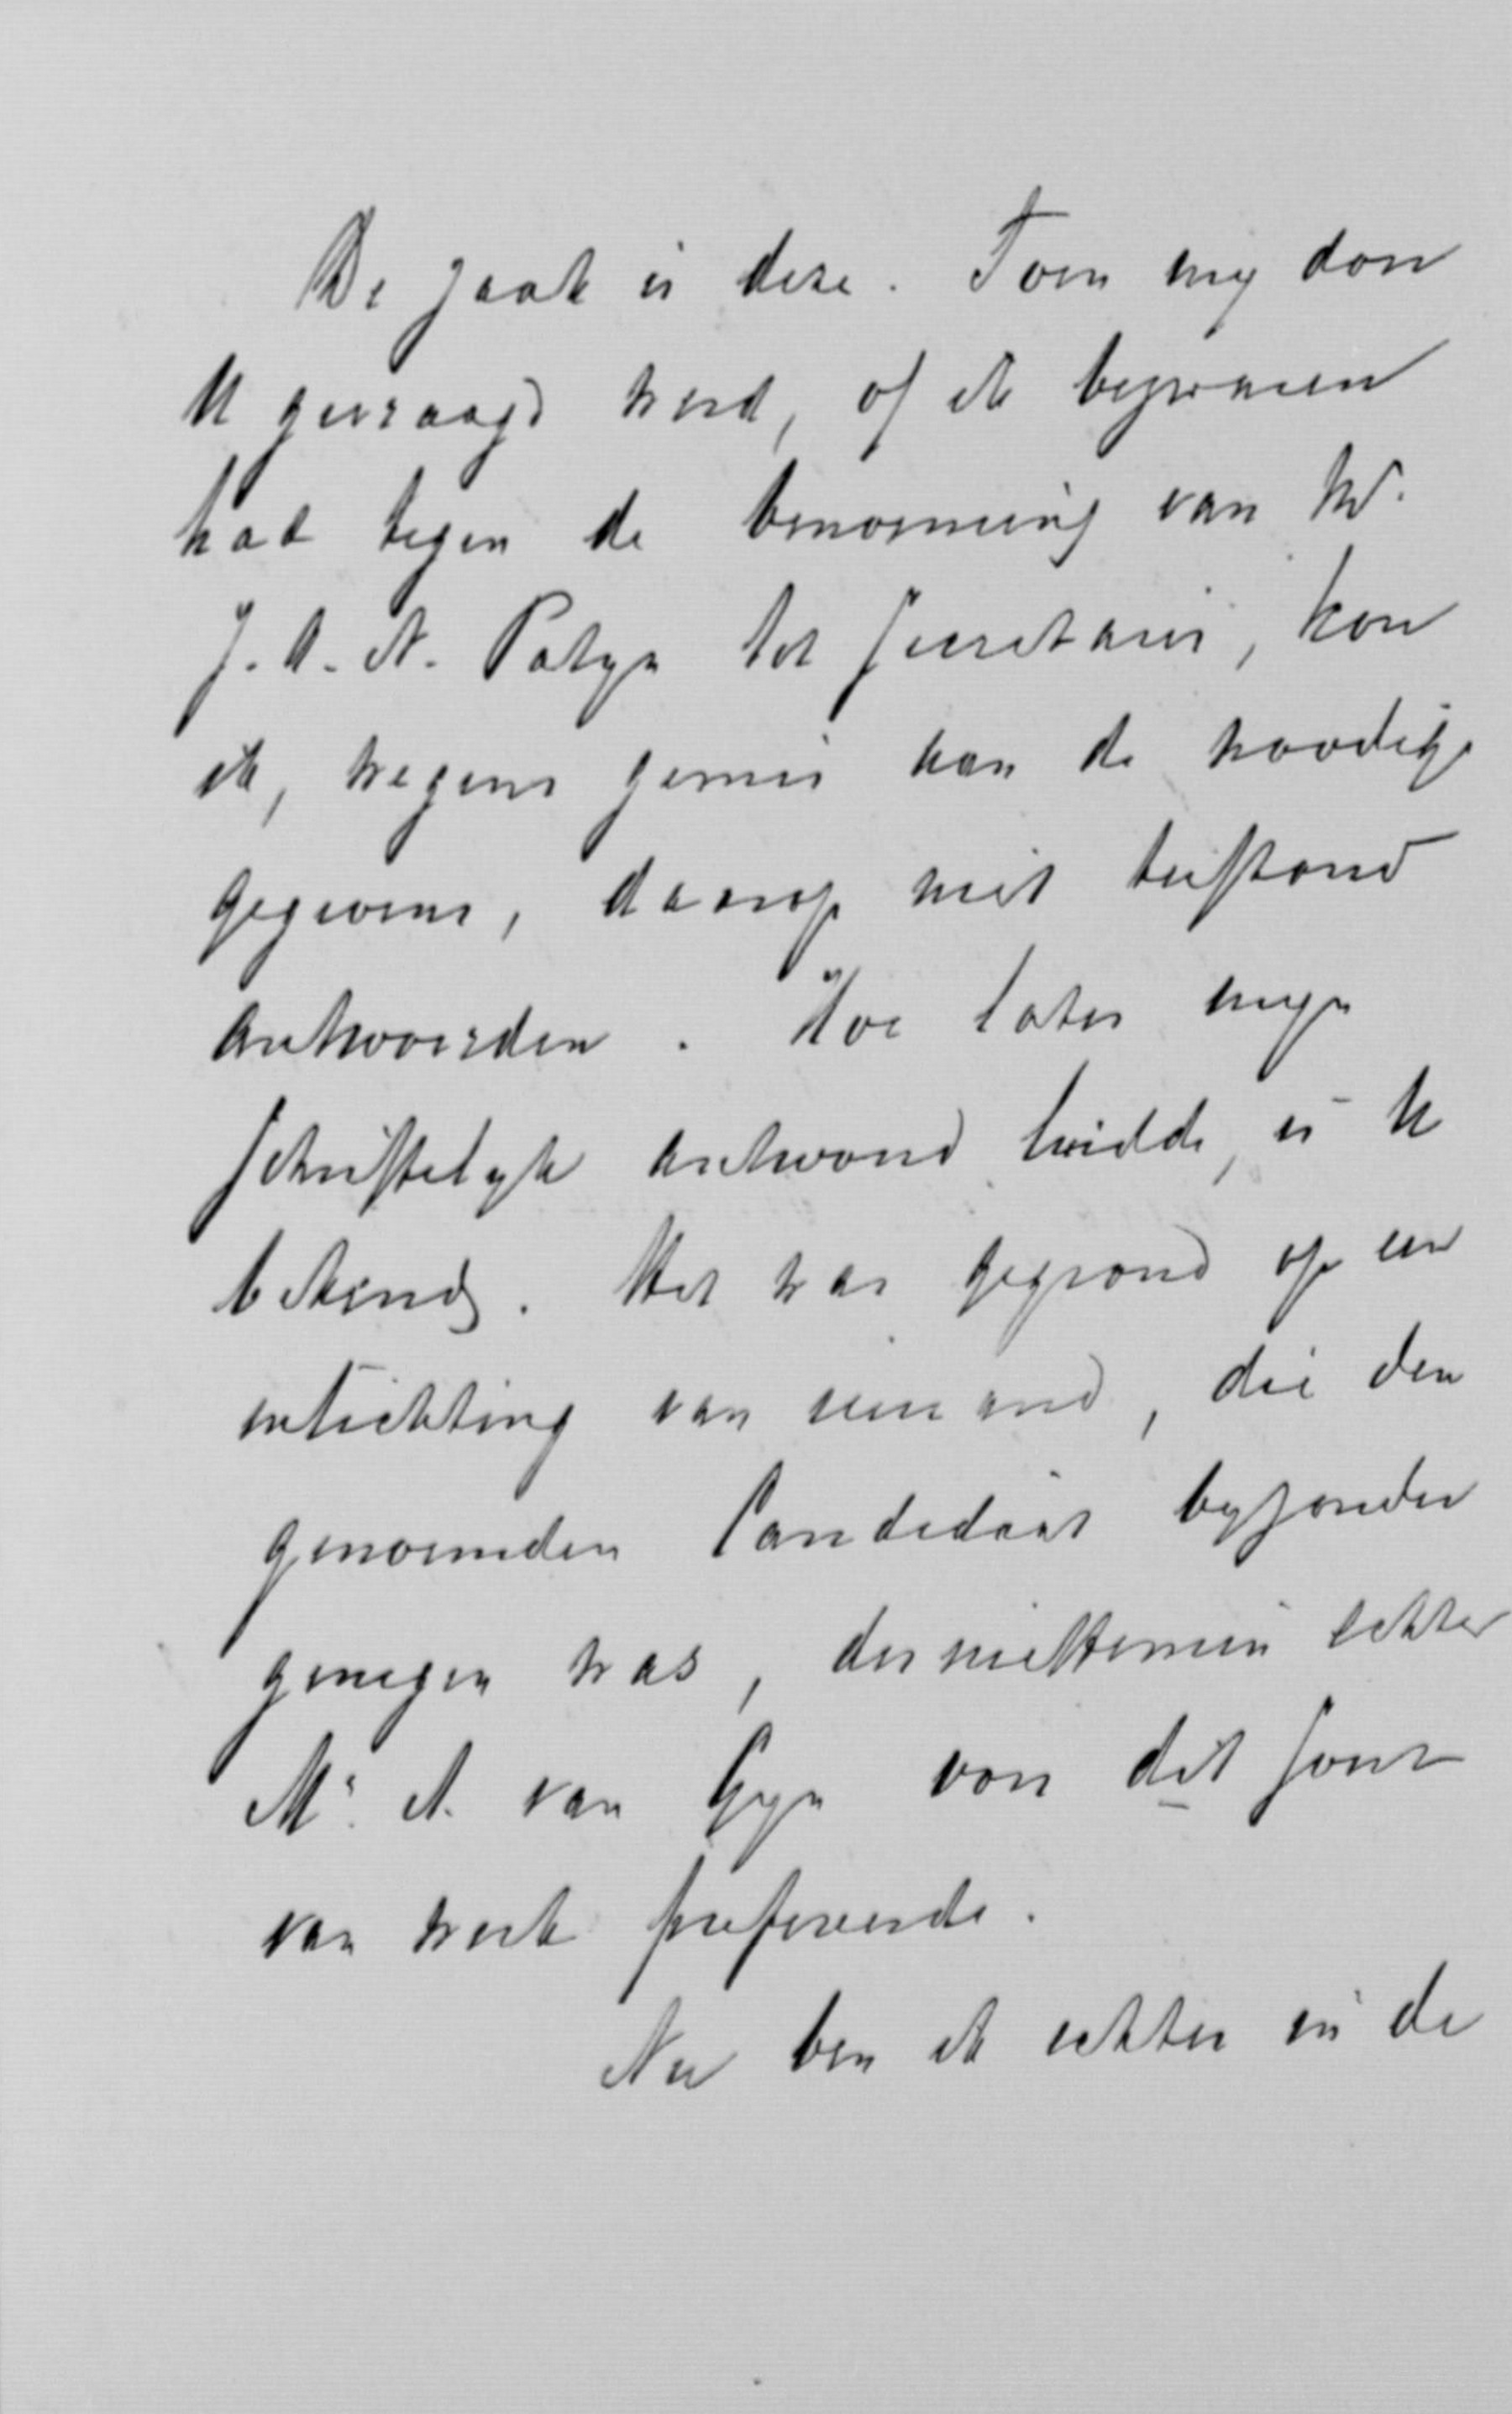 De zaak is deze. Toen mij door
U gevraagd werd, of ik bezwaren
had tegen de benoeming van Mr.
J. A. N. Patijn tot Secretaris, kon
ik, wegens gemis van de noodige
gegevens, daarop niet terstond
antwoorden. Hoe later mijn
schriftelijk antwoord luidde, is U
bekend. Het was gegrond op een
inlichting van iemand, die den
genoemden Candidaat byzonder
genegen was, desniettemin echter
Mr. A. van Gijn voor dit soort
van werk prefereerde.
Nu ben ik echter in de